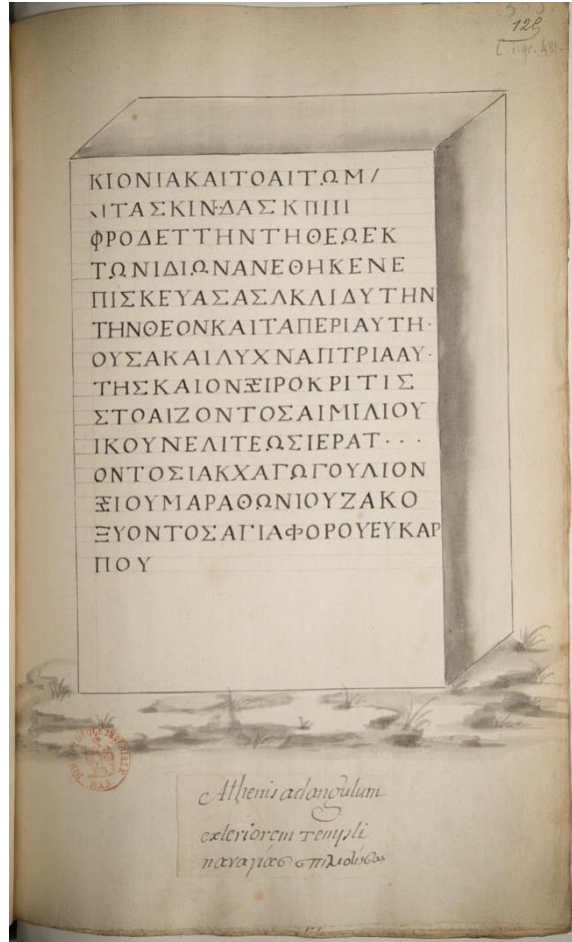 129
C. i. gr. 481
ΚΙΟΝΙΑΚΑΙΤΟΑΙΤΩΜ/
ΙΤΑΣΚΙΝ·ΔΑΣΚΠΙΙΙ
ΦΡΟΔΕΤΤΗΝΤΗΘΕΩΕΚ
ΤΩΝΙΔΙΩΝΑΝΕΘΗΚΕΝΕ
ΠΙΣΚΕΥΑΣΑΣΛΚΛΙΔΥΤΗΝ
ΤΗΝΘΕΟΝΚΑΙΤΑΠΕΡΙΑΥΤΗ·
ΟΥΣΑΚΑΙΛΥΧΝΑΠΤΡΙΑΑΥ·
ΤΗΣΚΑΙΟΝΞΙΡΟΚΡΙΤΙΣ
ΣΤΟΑΙΖΟΝΤΟΣΑΙΜΙΛΙΟΥ
ΙΚΟΥΝΕΛΙΤΕΩΣΙΕΡΑΤ···
ΟΝΤΟΣΙΑΚΧΑΓΩΓΟΥΛΙΟΝ
ΞΙΟΥΜΑΡΑΘΩΝΙΟΥΖΑΚΟ
ΞΥΟΝΤΟΣΑΓΙΑΦΟΡΟΥΕΥΚΑΡ
ΠΟΥ
Athenis ad angulum
exteriorem templi
παναγίας σπιλιοτίσσας